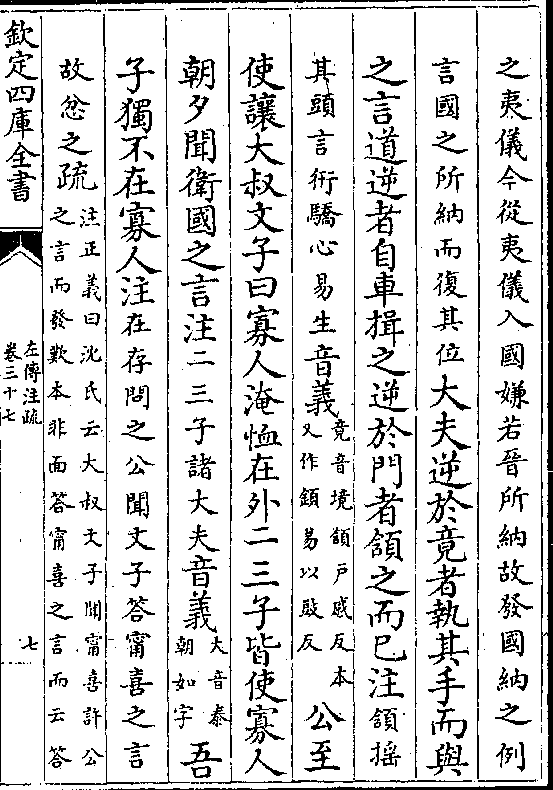 之夷儀今從夷儀入國嫌若晉所納故發國納之例
言國之所納而復其位大夫逆於竟者執其手而與
之言道逆者自車揖之逆於門者頷之而已注頷搖
其頭言衎驕心易生音義
竟音境頷戸感反本
又作頷易以䜴反
公至
使讓大叔文子曰寡人淹恤在外二三子皆使寡人
朝夕聞衛國之言注二三子諸大夫音義
大音泰
朝如字
吾
子獨不在寡人注在存問之公聞文子答甯喜之言
故忿之疏
注正義曰沈氏云大叔文子聞甯喜許公
之言而發歎本非面答甯喜之言而云答
欽定四庫全書
左傳注疏
卷三十七
七